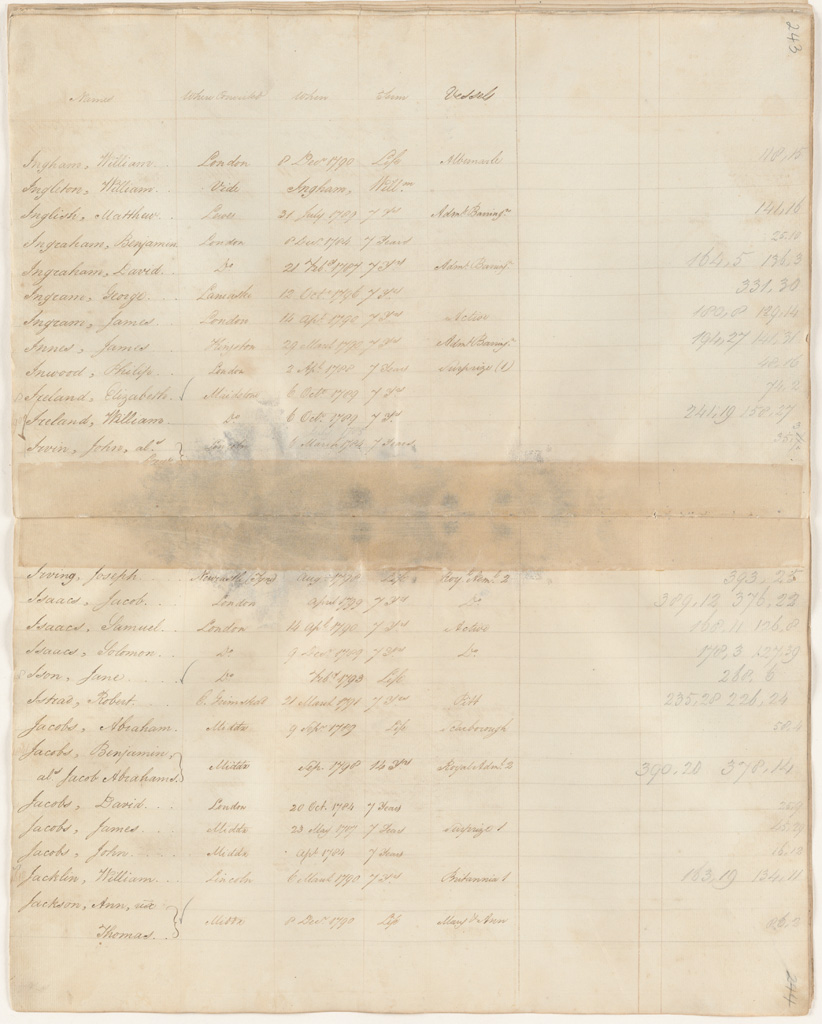 243
Names When Convicted When Term Vessels
Ingham, William London 8 Decr 1790 Life Albemarle 118,15
Ingleton, William Vide Ingham, Willm
English, Matthew 31 July 1789 7 Yrs Adml Barringn 141,16
Ingraham, Benjamin London 8 Decr 1784 7 Years 25,10
Ingraham, David Do 21 Feby 1787 7 Yrs Adml Barringn 164,5 136,3
Ingram, George Lancaster 12 Octr 1796 7 Yrs 331,30
Ingram, James London 14 Apl 1790 7 Yrs Active 180,8 129,14
Innes, James Kingston 29 March 7 Yrs Adml Barringn 194,27
Inwood, Philip London 2 Apl 1788 7 Years Surprize (1) 48,16
Ireland, Elizabeth Maidstone 6 Octr 1789 7 Yrs 74,2
Ireland, William Do 6 Octr 1789 7 Yrs 241,19 158,27
Irvin, John, als London 6 March 1784 7 Years
Irving, Joseph Newcastle (Tyne) Augt 1798 Life Royl Adml 2 393,25
Isaacs, Jacob London April 1799 7 Yrs Do 389,12 376,22
Isaacs, Samuel London 14 Apl 1790 7 Yrs Active 168,11 126,8
Isaacs, Solomon Do 9 1789 7 Yrs Do 178,3 127,39
Ison, Jane Do Feby 1793 Life 268,6
Istead, Robert E. Grinstead 21 March 1791 7 Yrs Pitt 235,28 226,24
Jacobs, Abraham Middx 9 Sepr 1789 Life Scarborough 58,4
Jacobs, Benjamin,
als Jacob Abrahams Middx Sep. 1798 14 Yrs Royal Adml 2 390,20 378,14
Jacobs, David London 20 Oct. 1784 7 Years
Jacobs, James Middx 23 May 1787 7 Years Surprize 1
Jacobs, John Middx Apl 1784 7 Years 16,12
Jacklin, William Lincoln 6 March 1790 7 Yrs Britannia 1 163,19 134,11
Jackson, Ann, ux
Thomas Middx 8 Decr 1790 Life Mary & Ann
244